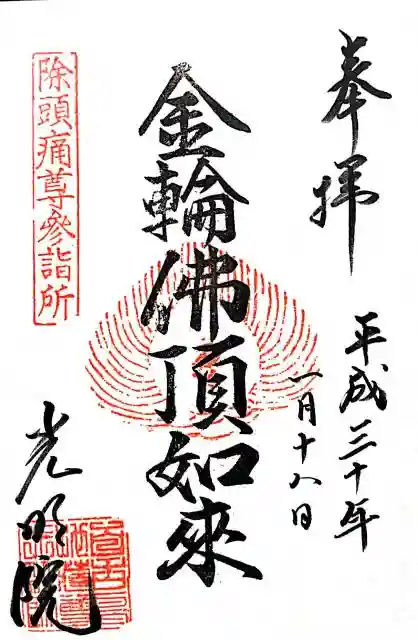 奉拝
平成三十年
一月十八日
金輪佛頂如來
除頭痛尊参詣所
光明院